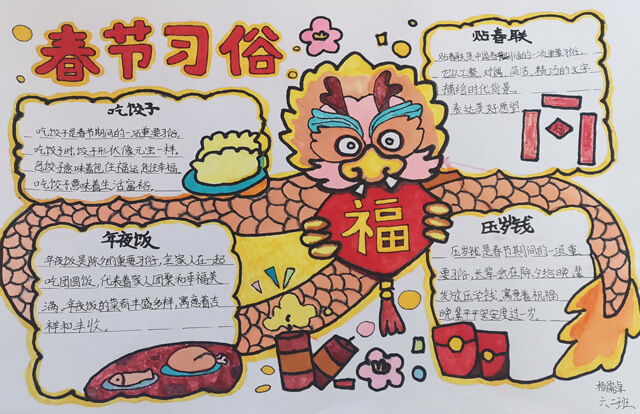 春节习俗
吃饺子
吃饺子是春节期间的一项重要习俗,
吃饺子时,饺子形状像元宝一样,
包饺子意味着包住福运,
吃饺子意味着生活富裕。
年夜饭
年夜饭是除夕的重要习俗,全家人在一起
吃团圆饭,代表着家人团聚和幸福美
满。年夜饭的菜有丰盛多样,寓意着吉
祥和丰收。
福
贴春联
贴春联是中国春节期间的一项重要习俗,
它以工整、对偶、简洁、精巧的文字
描绘时代背景。
表达美好愿望
压岁钱
压岁钱是春节期间的一项重
要习俗,长辈会在除夕给晚辈
发放压岁钱,寓意着祝福
晚辈平平安安度过一岁。
六二班